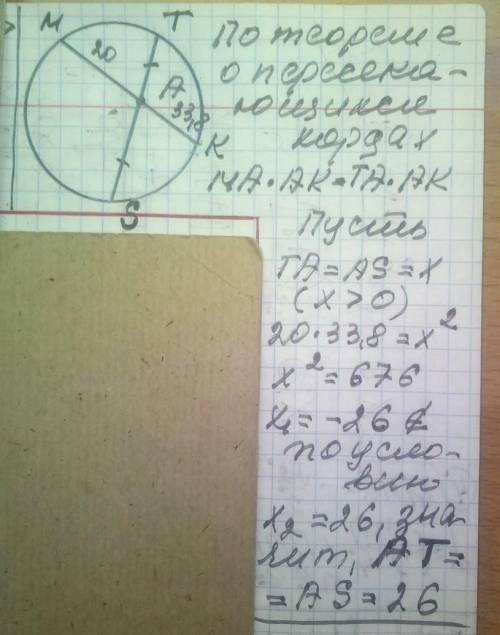 M
T
20
A
33,8
K
S
По теореме
о пересека-
ющихся
хордах
MA·AK=TA·AK
Пусть
TA=AS=x
(x>0)
20·33,8=x²
x²=676
x₁=-26 ∉
по усло-
вию
x₂=26, зна-
чит, AT=
=AS=26